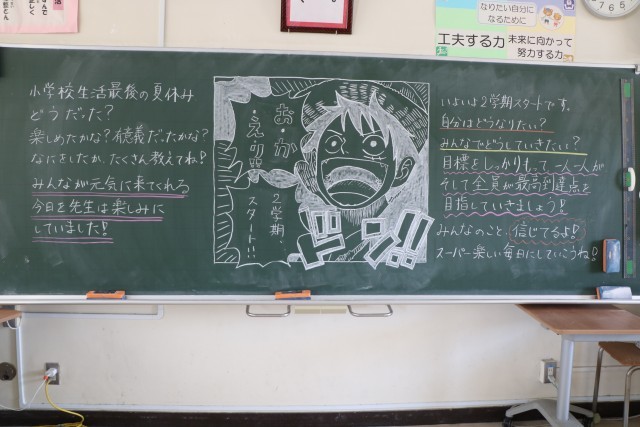 なりたい自分に
なるために
工夫する力
未来に向かって
努力する力
小学校生活最後の夏休み
どうだった？
楽しめたかな？有意義だったかな？
なにをしたか、たくさん教えてね！
みんなが元気に来てくれる
今日を先生は楽しみに
していました！
お・か
・えり!!
2学期、
スタート!!
ドン!!
いよいよ2学期スタートです。
自分はどうなりたい？
みんなでどうしていきたい？
目標をしっかりもって、一人一人が
そして全員が最高到達点を
目指していきましょう！
みんなのこと、信じてるよ！
スーパー楽しい毎日にしていこうね！